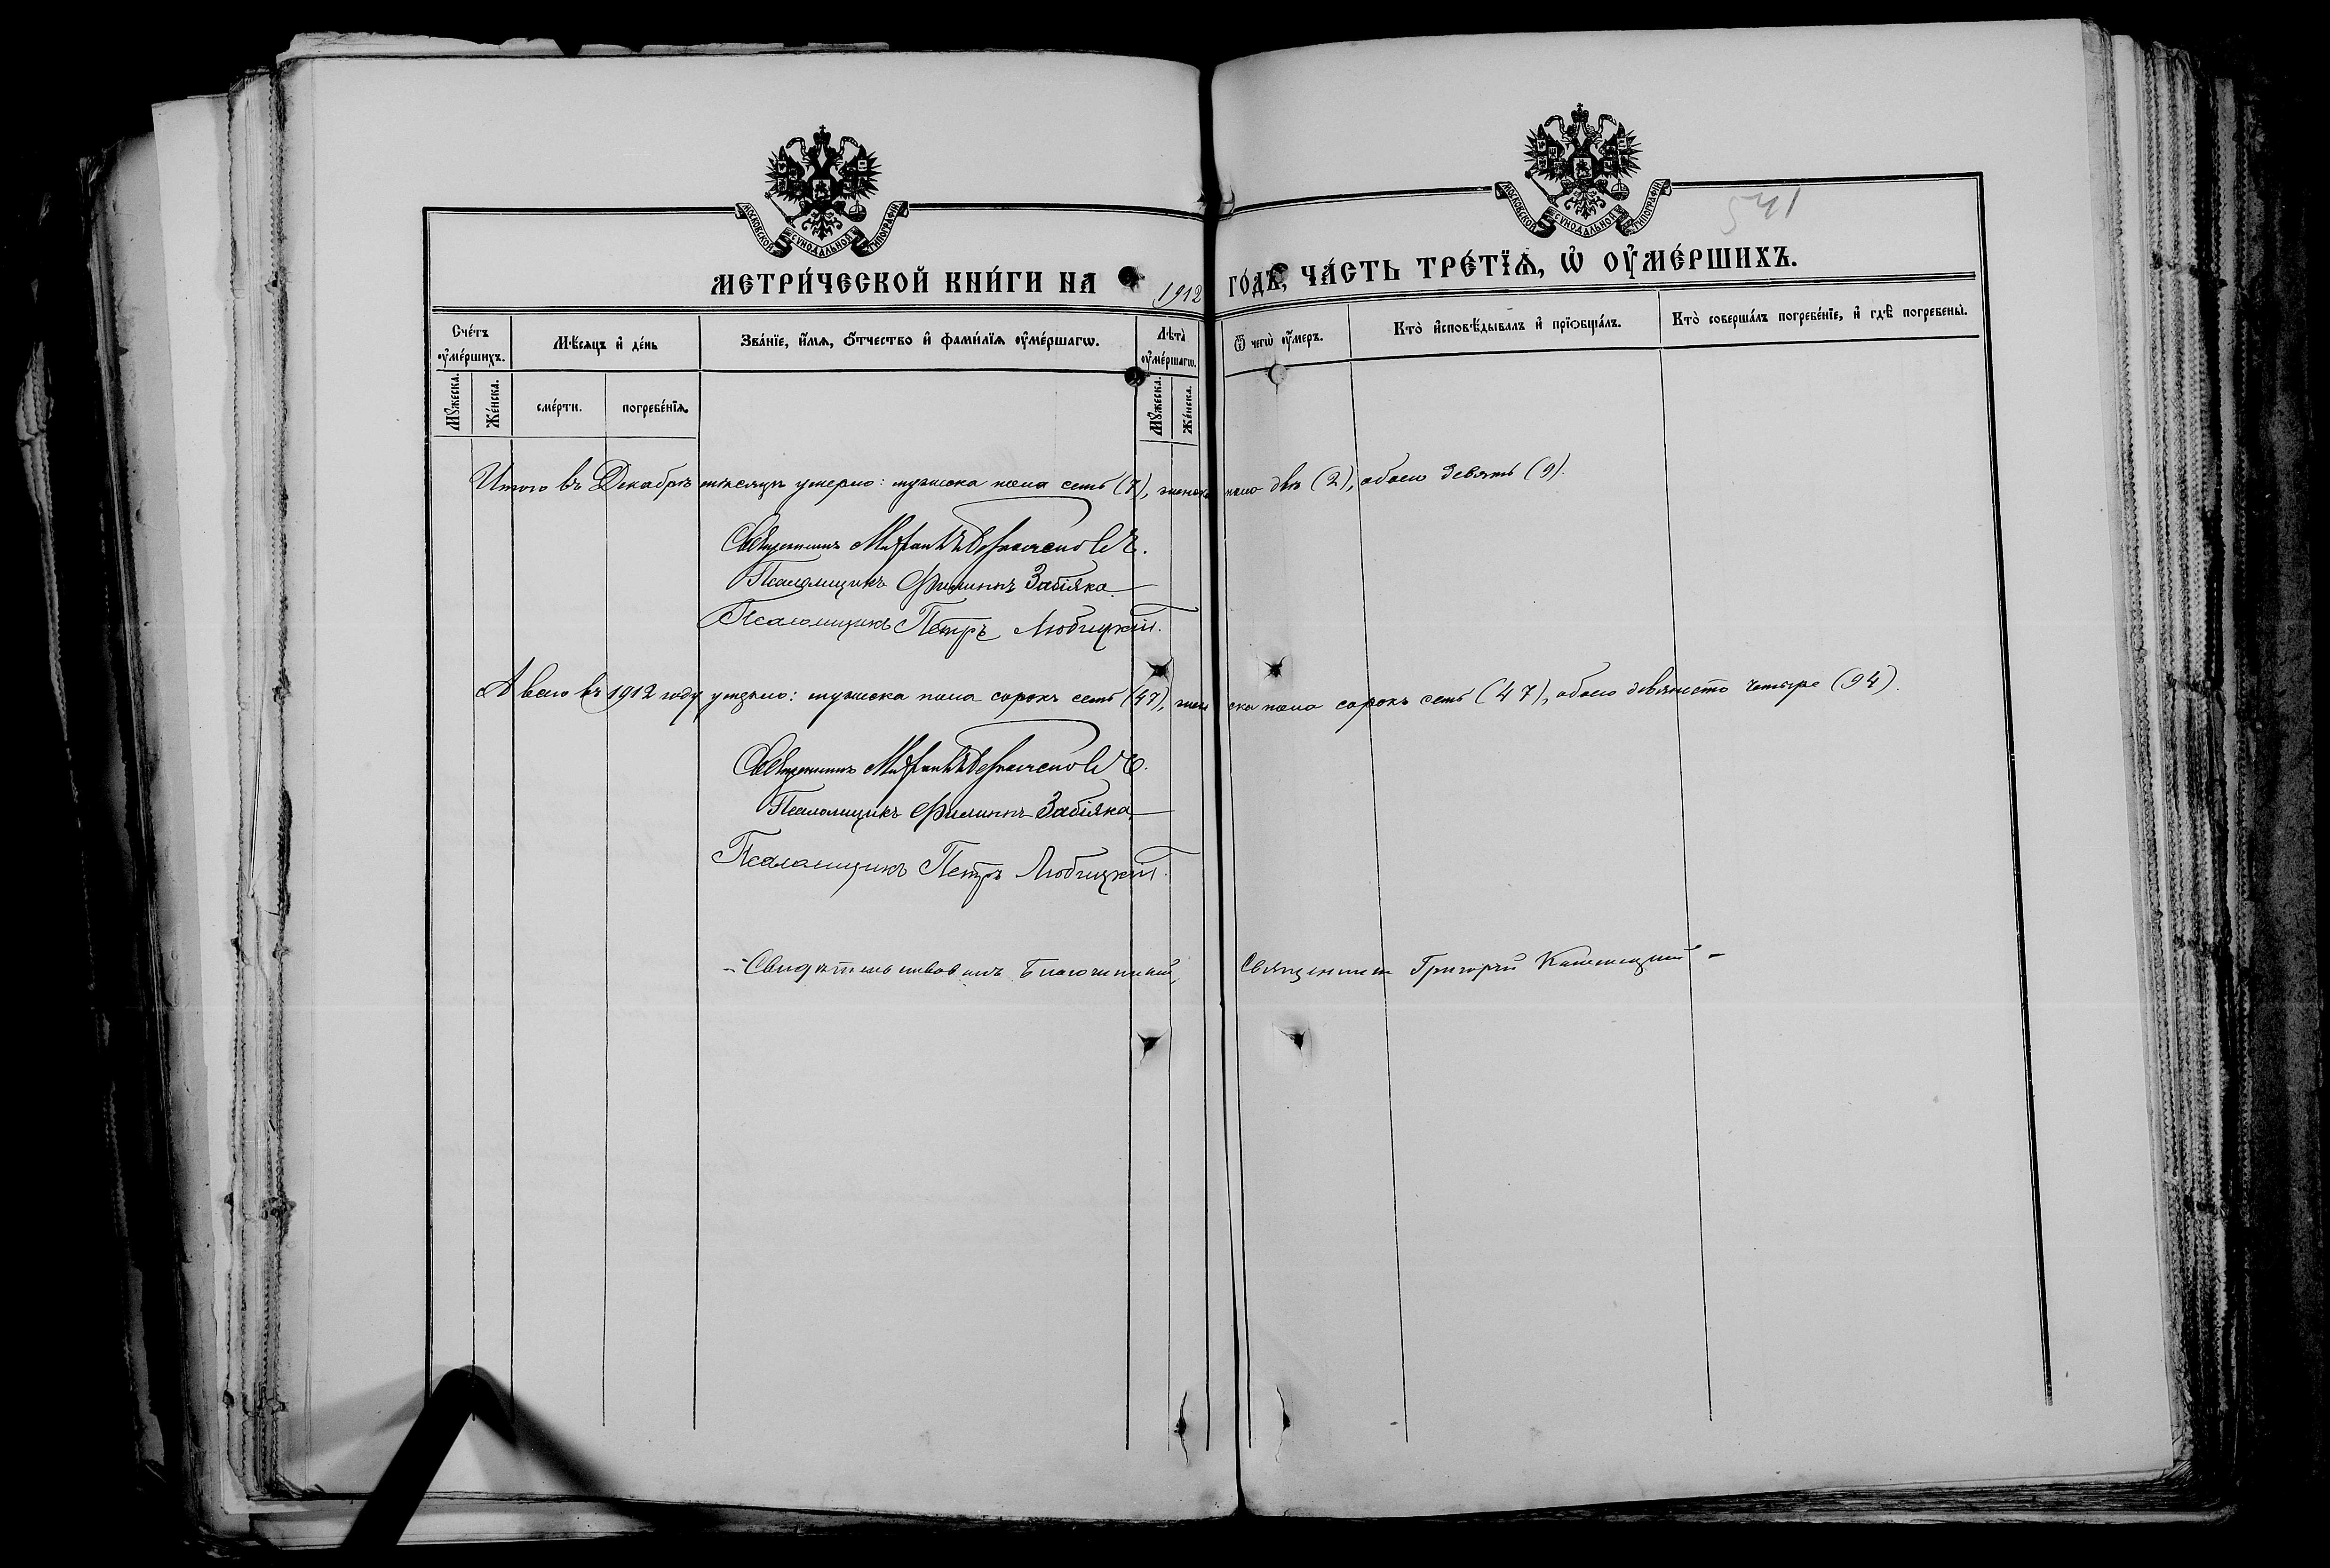 МОСКОВСКОЙ СѴНОДАЛЬНОЙ ТИПОГРАФІИ
МОСКОВСКОЙ СѴНОДАЛЬНОЙ ТИПОГРАФІИ
541
МЕТРИ́ЧЕСКОЙ КНИ́ГИ НА 1912 ГО́ДЪ, ЧА́СТЬ ТРЕ́ТЇѦ, Ѡ ОУ҆МЕ́РШИХЪ.
Сче́тъ оу҆ме́ршихъ.
Мѣ́сяцъ и҆ де́нь
Зва́нїе, и҆́мѧ, ѻ҆́тчество и҆ фами́лїѧ оу҆ме́ршагѡ.
Лѣта̀ оу҆ме́ршагѡ.
Ѿ чегѡ̀ оу҆́меръ.
Кто̀ и҆сповѣ́дывалъ и҆ прїѡбща́лъ.
Кто̀ соверша́лъ погребе́нїе, и҆ гдѣ̀ погребены̀.
Мꙋ́жеска.
Же́нска.
сме́рти.
погребе́нїѧ.
Мꙋ́жеска.
Же́нска.
Итого въ Декабрѣ мѣсяцѣ умерло: мужеска пола семь (7), женска пола двѣ (2), обоего девять (9).
Священникъ Митрофанъ
Псаломщикъ Филиппъ Забіяка
Псаломщикъ Петръ Любицкій.
А всего въ 1912 году умерло: мужеска пола сорокъ семь (47), женска пола сорокъ семь (47), обоего девяносто четыре (94).
Священникъ Митрофанъ
Псаломщикъ Филиппъ Забіяка
Псаломщикъ Петръ Любицкій.
Свидѣтельствовалъ Благочинный, Священникъ Григорій